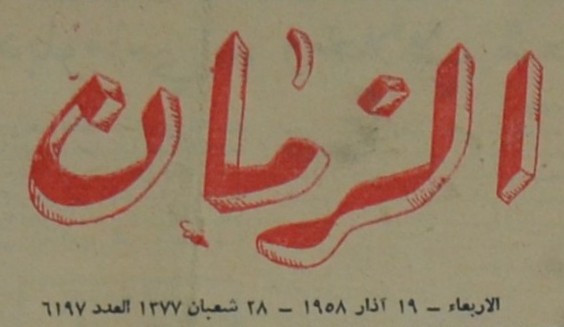 الزمان
الاربعاء – ١٩ آذار ١٩٥٨ – ٢٨ شعبان ١٣٧٧ العدد ٦١٩٧